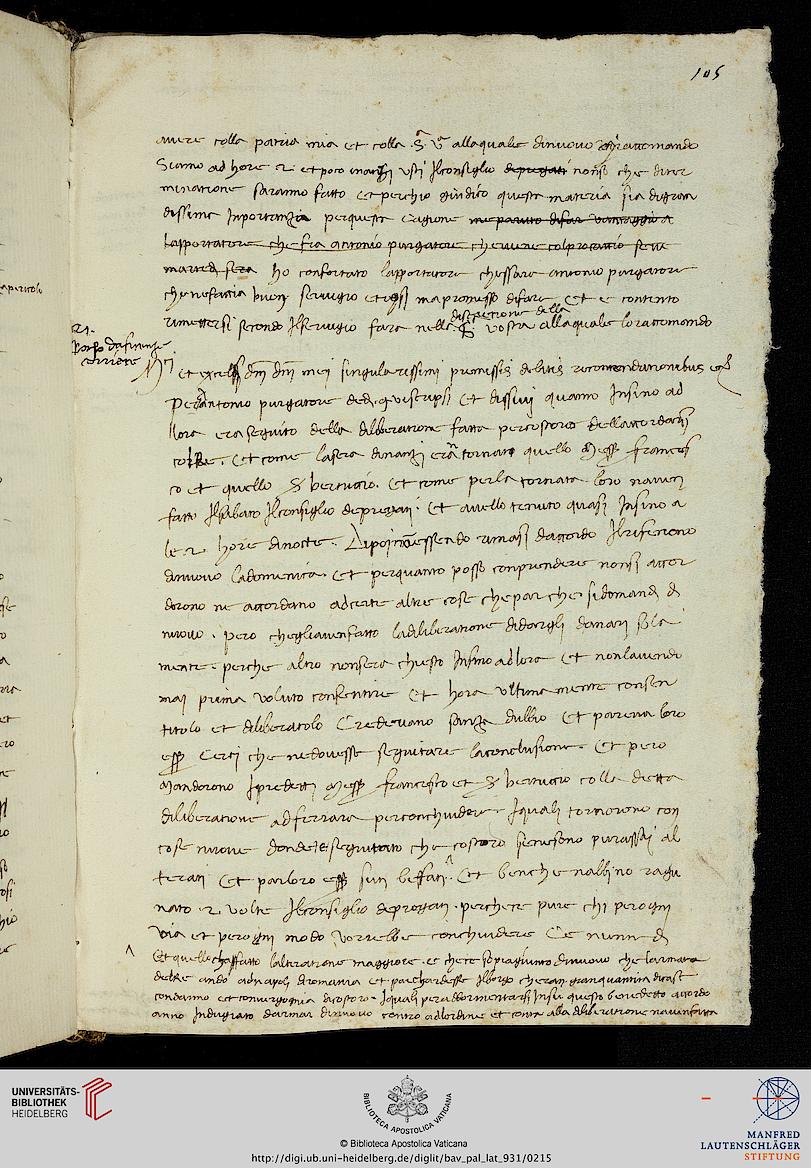 105
avere colla patria mia et colla S. V. alla quale dinuovo mi raccomando
Siamo ad hore 2 et poco inanzi usci Ilconsiglio depregati nonso che diter
minatione saranno fatto Et perchio giudico questa materia sia digran
dissima Inportanzia perquesta Cagione me paruto difar vantaggio a
lapportatore che fia antonio purgatore cheviene colprocaccio
ho confortato lapportatore chessara antonio purgatore
che nefaccia buon servigio et mapromesso difare Et e contento
rimettersi secondo Ilservigio fara nella discretione della vostra allaquale loraccomando
21.
Et excelsi dni dni mei singularissimi premissis debitis recomendationibus
Per antonio purgatore vi scripsi Et dissivi quanto Insino ad
llora era seguito della diliberatione fatta percostoro dellaccordarsi
Et come lasera dinanzi era tornato quello Messer francies
co et quello S bertuccio. Et come perla tornata loro
fatto Ilsabato Ilconsiglio depregati. Et avello tenuto quasi Insino a
le 2 hore dinocte. Dipoi nonessendo rimasi daccordo Ilrifeciono
dinuovo ladomenica. Et perquanto posso conprendere nonsi accor
dorono ne accordano adcerte altre cose cheparche sidomandi di
nuovo. pero chegliavenfatto ladiliberatione didargli danari sola
mente. perche altro nonsera chiesto Insino adlora Et nonlavendo
mai prima voluto consentire Et hora ultimamente consen
titolo et diliberatolo Credevano sanza dubbio Et pareva loro
esser Certi che nedovesse seguitare laconclusione. Et pero
Mandorono Ipredetti Messer francesco et S bertuccio colla detta
diliberatione adferrara perconchiudere. Iquali tornorono con
cose nuove donde e seguitato che costoro senesono purassai al
terati Et parloro esser suti beffati. Et benche nabbino ragu
nato 2 volte Ilconsiglio depregati. perchece pure chi perogni
via et perogni modo vorrebbe conchiudere Ce nunn di
Et quello chaffatto lalteratione maggiore. e chece sopragiunto dinuovo che larmata
delRe ando adnapoli diromania et Ilborgo
condanno et convergogna dicostoro. Iquali peraddormentarsi Insu questo benedetto accordo
anno Indugiato darmar dinuovo contro adlordine et contra alla diliberatione navienfatta
UNIVERSITÄTS-
BIBLIOTHEK
HEIDELBERG
BIBLIOTECA APOSTOLICA VATICANA
© Biblioteca Apostolica Vaticana
http://digi.ub.uni-heidelberg.de/diglit/bav_pal_lat_931/0215
MANFRED
LAUTENSCHLÄGER
STIFTUNG